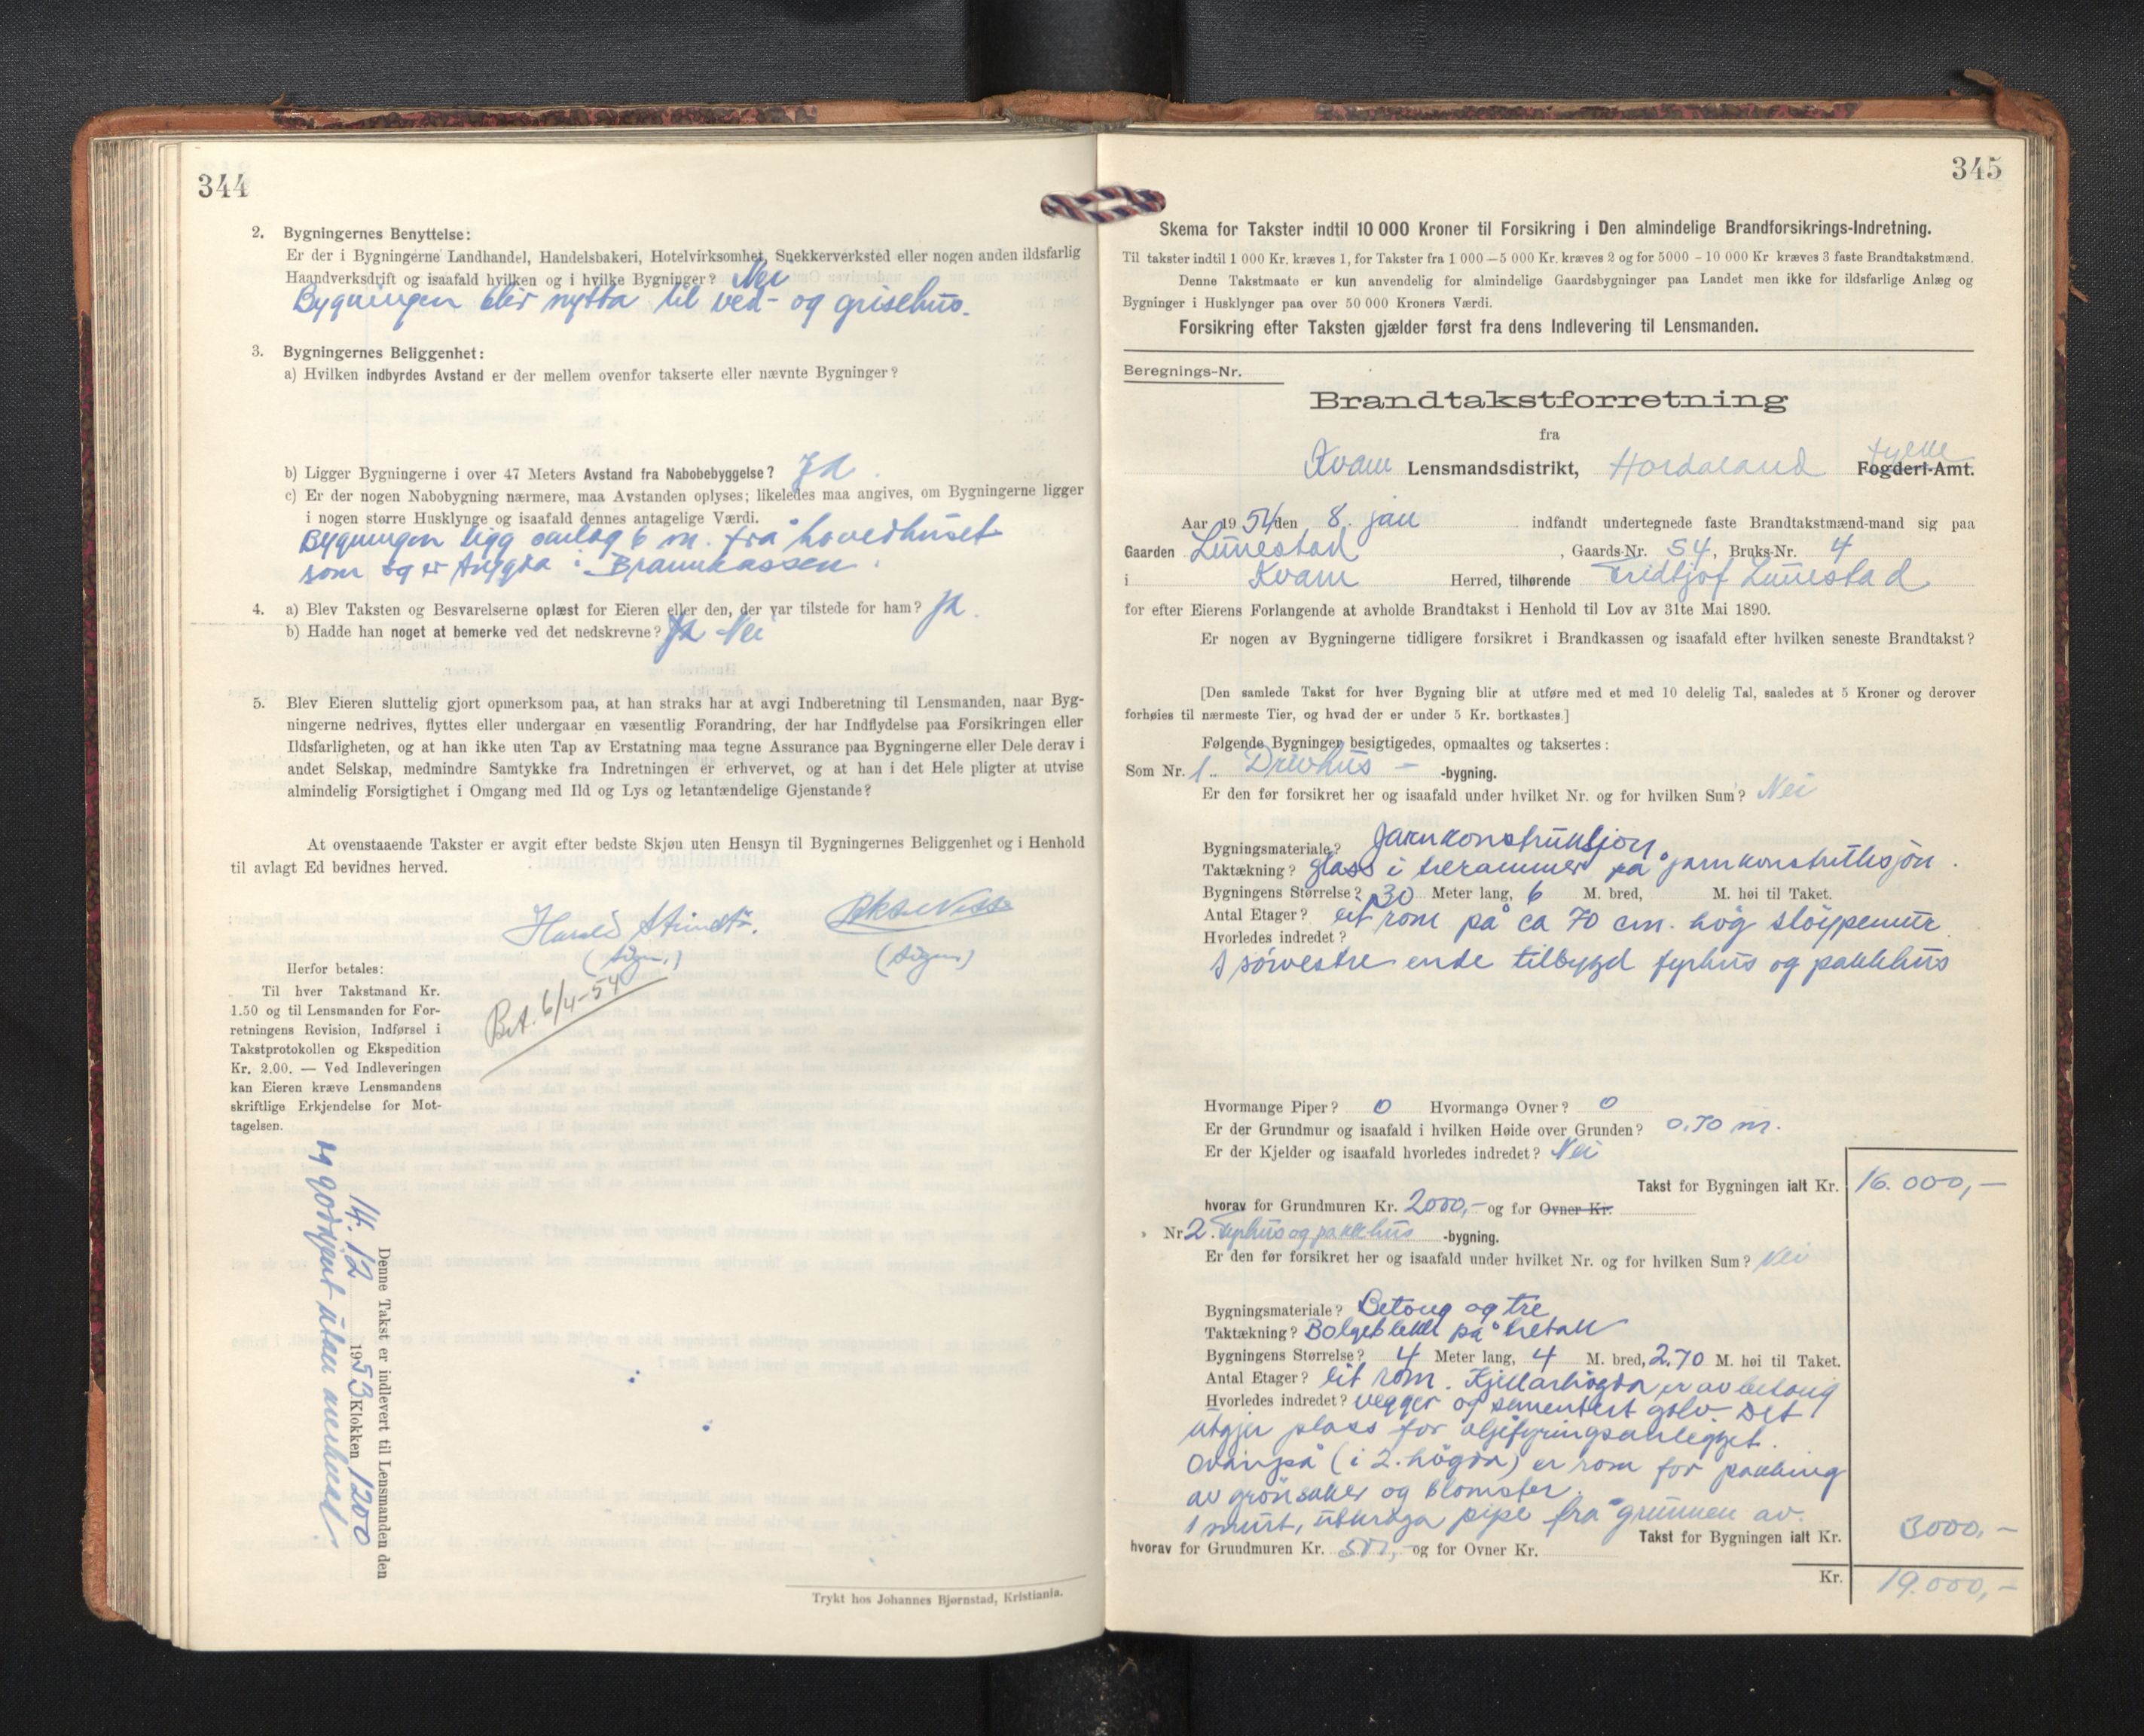 344
2. Bygningernes Benyttelse:
Er der i Bygningerne Landhandel, Handelsbakeri, Hotelvirksomhet, Snekkerverksted eller nogen anden ildsfarlig
Haandverksdrift og isaafald hvilken og i hvilke Bygninger? Nei
Bygningen blir nytta til ved- og grisehus.
3. Bygningernes Beliggenhet:
a) Hvilken indbyrdes Avstand er der mellem ovenfor takserte eller nævnte Bygninger?
b) Ligger Bygningerne i over 47 Meters Avstand fra Nabobebyggelse? Ja.
c) Er der nogen Nabobygning nærmere, maa Avstanden oplyses; likeledes maa angives, om Bygningerne ligger
i nogen større Husklynge og isaafald dennes antagelige Værdi.
Bygningen ligg omlag 6 m. frå hovedhuset
som og er trygda i Brannkassen.
4. a) Blev Taksten og Besvarelserne oplæst for Eieren eller den, der var tilstede for ham? Ja.
b) Hadde han noget at bemerke ved det nedskrevne? Ja Nei
5. Blev Eieren sluttelig gjort opmerksom paa, at han straks har at avgi Indberetning til Lensmanden, naar Byg-
ningerne nedrives, flyttes eller undergaar en væsentlig Forandring, der har Indflydelse paa Forsikringen eller
Ildsfarligheten, og at han ikke uten Tap av Erstatning maa tegne Assurance paa Bygningerne eller Dele derav i
andet Selskap, medmindre Samtykke fra Indretningen er erhvervet, og at han i det Hele pligter at utvise
almindelig Forsigtighet i Omgang med Ild og Lys og letantændelige Gjenstande?
At ovenstaaende Takster er avgit efter bedste Skjøn uten Hensyn til Bygningernes Beliggenhet og i Henhold
til avlagt Ed bevidnes herved.
Harald
(sign.) (sign)
Bet. 6/4-54
Herfor betales:
Til hver Takstmand Kr.
1.50 og til Lensmanden for For-
retningens Revision, Indførsel i
Takstprotokollen og Ekspedition
Kr. 2.00. — Ved Indleveringen
kan Eieren kræve Lensmandens
skriftlige Erkjendelse for Mot-
tagelsen.
Denne Takst er indlevert til Lensmanden den
14. 12 1953 Klokken 1200
og godkjent utan merknad
Trykt hos Johannes Bjørnstad, Kristiania.
345
Skema for Takster indtil 10 000 Kroner til Forsikring i Den almindelige Brandforsikrings-Indretning.
Til takster indtil 1 000 Kr. kræves 1, for Takster fra 1 000—5 000 Kr. kræves 2 og for 5000 – 10 000 Kr kræves 3 faste Brandtakstmænd.
Denne Takstmaate er kun anvendelig for almindelige Gaardsbygninger paa Landet men ikke for ildsfarlige Anlæg og
Bygninger i Husklynger paa over 50 000 Kroners Værdi.
Forsikring efter Taksten gjælder først fra dens Indlevering til Lensmanden.
Beregnings-Nr.
Brandtakstforretning
fra
fylke
Kvam Lensmandsdistrikt, Hordaland Fogderi-Amt.
Aar 1954 den 8. jan indfandt undertegnede faste Brandtakstmænd-mand sig paa
Gaarden Linnestad, Gaards-Nr. 54, Bruks-Nr. 4
i Kvam Herred, tilhørende Fridtjof Linnestad
for efter Eierens Forlangende at avholde Brandtakst i Henhold til Lov av 31te Mai 1890.
Er nogen av Bygningerne tidligere forsikret i Brandkassen og isaafald efter hvilken seneste Brandtakst?
[Den samlede Takst for hver Bygning blir at utføre med et med 10 delelig Tal, saaledes at 5 Kroner og derover
forhøies til nærmeste Tier, og hvad der er under 5 Kr. bortkastes.]
Følgende Bygninger besigtigedes, opmaaltes og taksertes:
Som Nr. 1. Drivhus - -bygning.
Er den før forsikret her og isaafald under hvilket Nr. og for hvilken Sum? Nei
Bygningsmateriale? Jarnkonstruksjon
Taktækning? glass i trerammer på jarnkonstruksjon.
Bygningens Størrelse? 30 Meter lang, 6 M. bred, M. høi til Taket.
Antal Etager? eit rom på ca 70 cm. høg støypemur
Hvorledes indredet?
I sørvestre ende tilbygd fyrhus og pakkhus
Hvormange Piper? 0 Hvormange Ovner? 0
Er der Grundmur og isaafald i hvilken Høide over Grunden? 0.70 m.
Er der Kjelder og isaafald hvorledes indredet? Nei
Takst for Bygningen ialt Kr. 16.000,-
hvorav for Grundmuren Kr. 2000,- og for Ovner Kr.
» Nr 2. Fyrhus og pakkhus -bygning.
Er den før forsikret her og isaafald under hvilket Nr. og for hvilken Sum? Nei
Bygningsmateriale? Betong og tre
Taktækning? Bølgeblekk på tretak
Bygningens Størrelse? 4 Meter lang, 4 M. bred, 2.70 M. høi til Taket.
Antal Etager? Eit rom. Kjellarhøgda er av betong
Hvorledes indredet? vegger og sementert golv. Det
utgjer plass for oljefyringsanlegget.
Ovanpå (i 2. høgda) er rom for pakking
av grønsaker og blomster.
1 murt, utkraga pipe frå grunnen av.
Takst for Bygningen ialt Kr. 3000,-
hvorav for Grundmuren Kr. 500,- og for Ovner Kr.
Kr. 19.000,-